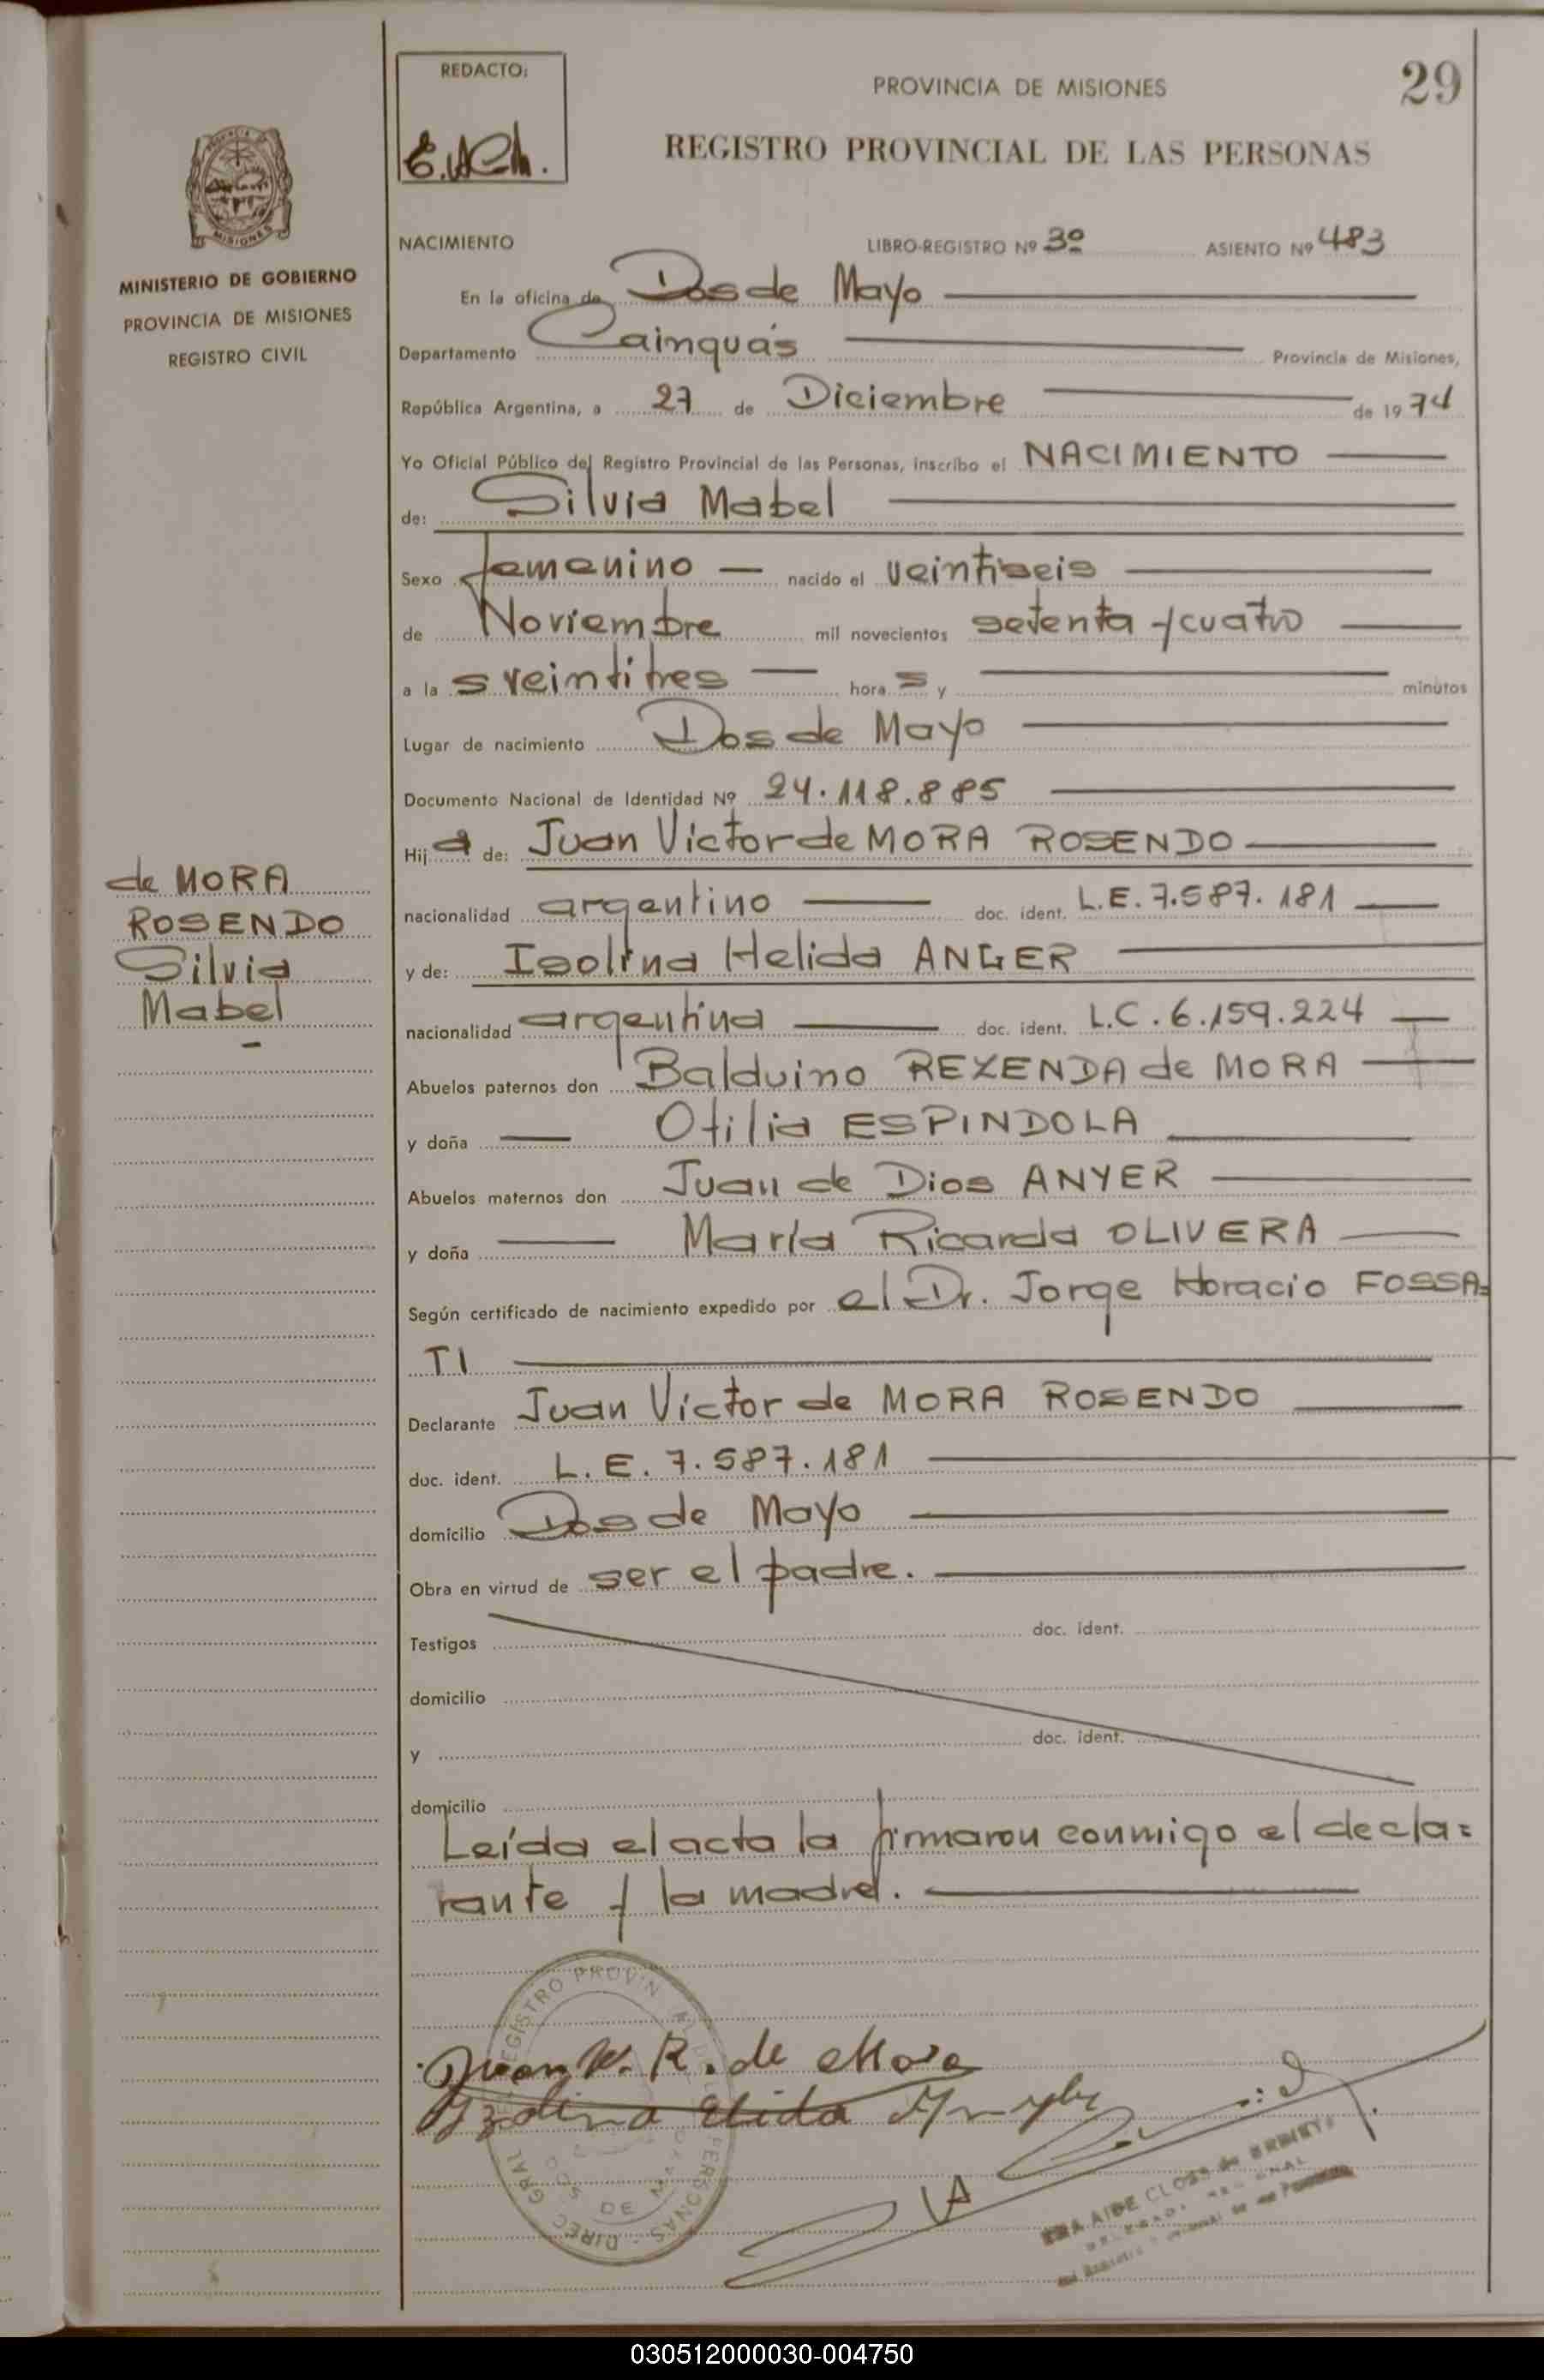 REDACTO:
PROVINCIA DE MISIONES
29
REGISTRO PROVINCIAL DE LAS PERSONAS
MISIONES
MINISTERIO DE GOBIERNO
PROVINCIA DE MISIONES
REGISTRO CIVIL
NACIMIENTO LIBRO-REGISTRO Nº 3º ASIENTO Nº 483
En la oficina de Dos de Mayo
Departamento Cainguás Provincia de Misiones,
República Argentina, a 27 de Diciembre de 1974
Yo Oficial Público del Registro Provincial de las Personas, inscribo el NACIMIENTO
de: Silvia Mabel
Sexo femenino nacido el veintiseis
de Noviembre mil novecientos setenta y cuatro
a las veintitres horas y minutos
Lugar de nacimiento Dos de Mayo
Documento Nacional de Identidad Nº 24.118.885
Hija de: Juan Victor de MORA ROSENDO
de MORA
ROSENDO
Silvia
Mabel
nacionalidad argentino doc. ident. L.E. 7.587.181
y de: Isolina Helida ANGER
nacionalidad argentina doc. ident. L.C. 6.159.224
Abuelos paternos don Balduino REZENDA de MORA
y doña Otilia ESPINDOLA
Abuelos maternos don Juan de Dios ANYER
y doña María Ricarda OLIVERA
Según certificado de nacimiento expedido por el Dr. Jorge Horacio FOSSA=
TI
Declarante Juan Victor de MORA ROSENDO
doc. ident. L.E. 7.587.181
domicilio Dos de Mayo
Obra en virtud de ser el padre.
Testigos doc. ident.
domicilio
y doc. ident.
domicilio
Leída el acta la firmaron conmigo el decla=
rante y la madre.
Juan V. R. de Mora
Izolina Elida
DOS DE MAYO
030512000030-004750